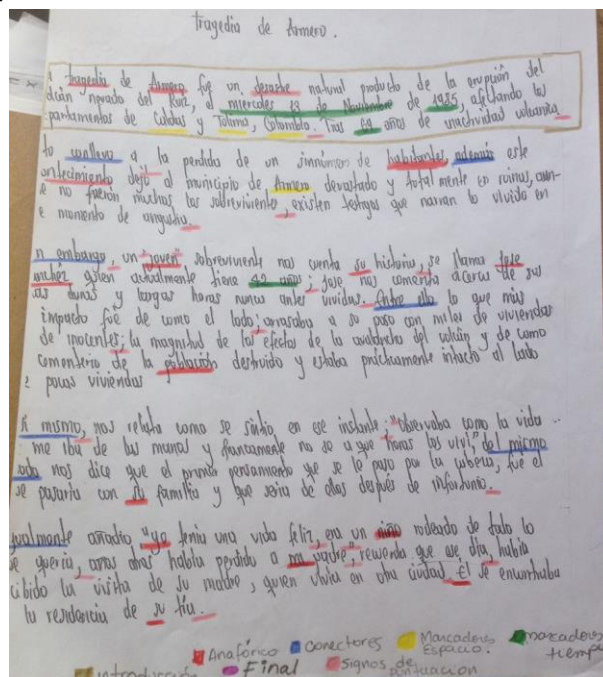 tragedia de Armero.
tragedia de Armero fue un desastre natural producto de la erupción del
nevado del Ruiz, el miercoles 13 de Noviembre de 1985, afectando los
partamentos de Caldas y Tolima, Colombia. Tras 69 años de inactividad volcanica
to conllevo a la perdida de un sinnúmero de habitantes, además este
ontecimiento dejó al municipio de Armero devastado y totalmente en ruinas, aun-
e no fueron muchos los sobreviviente, existen testigos que narran lo vivido en
e momento de angustia.
n embargo, un "joven" sobreviviente nos cuenta su historia, se llama Jose
quien actualmente tiene 42 años; Jose nos comenta acerca de sus
y largas horas nunca antes vividas. Entre ello lo que más
impacto fue de como el lodo; arrasaba a su paso con miles de viviendas
de inocentes; la magnitud de los efectos de la avalancha del volcán y de como
cementerio de la población destruido y estaba prácticamente intacto al lado
e pocas viviendas
í mismo, nos relata como se sintio en ese instante: "Observaba como la vida
me iba de las manos y francamente no se a que horas los viví," del mismo
nos dice que el primer pensamiento que se le paso por la cabeza, fue el
e pasaria con su familia y que seria de ellos después de infortunio.
ualmente añadio "yo tenia una vida feliz, era un niño rodeado de todo lo
e queria, años atras había perdido a mi padre", recuerda que ese dia, había
cibido la visita de su madre, quien vivia en otra ciudad. Él se encontraba
la residencia de su tía.
Anafórico conectores Marcadores Espacio. marcadores tiemp
introducción Final Signos de puntuacion